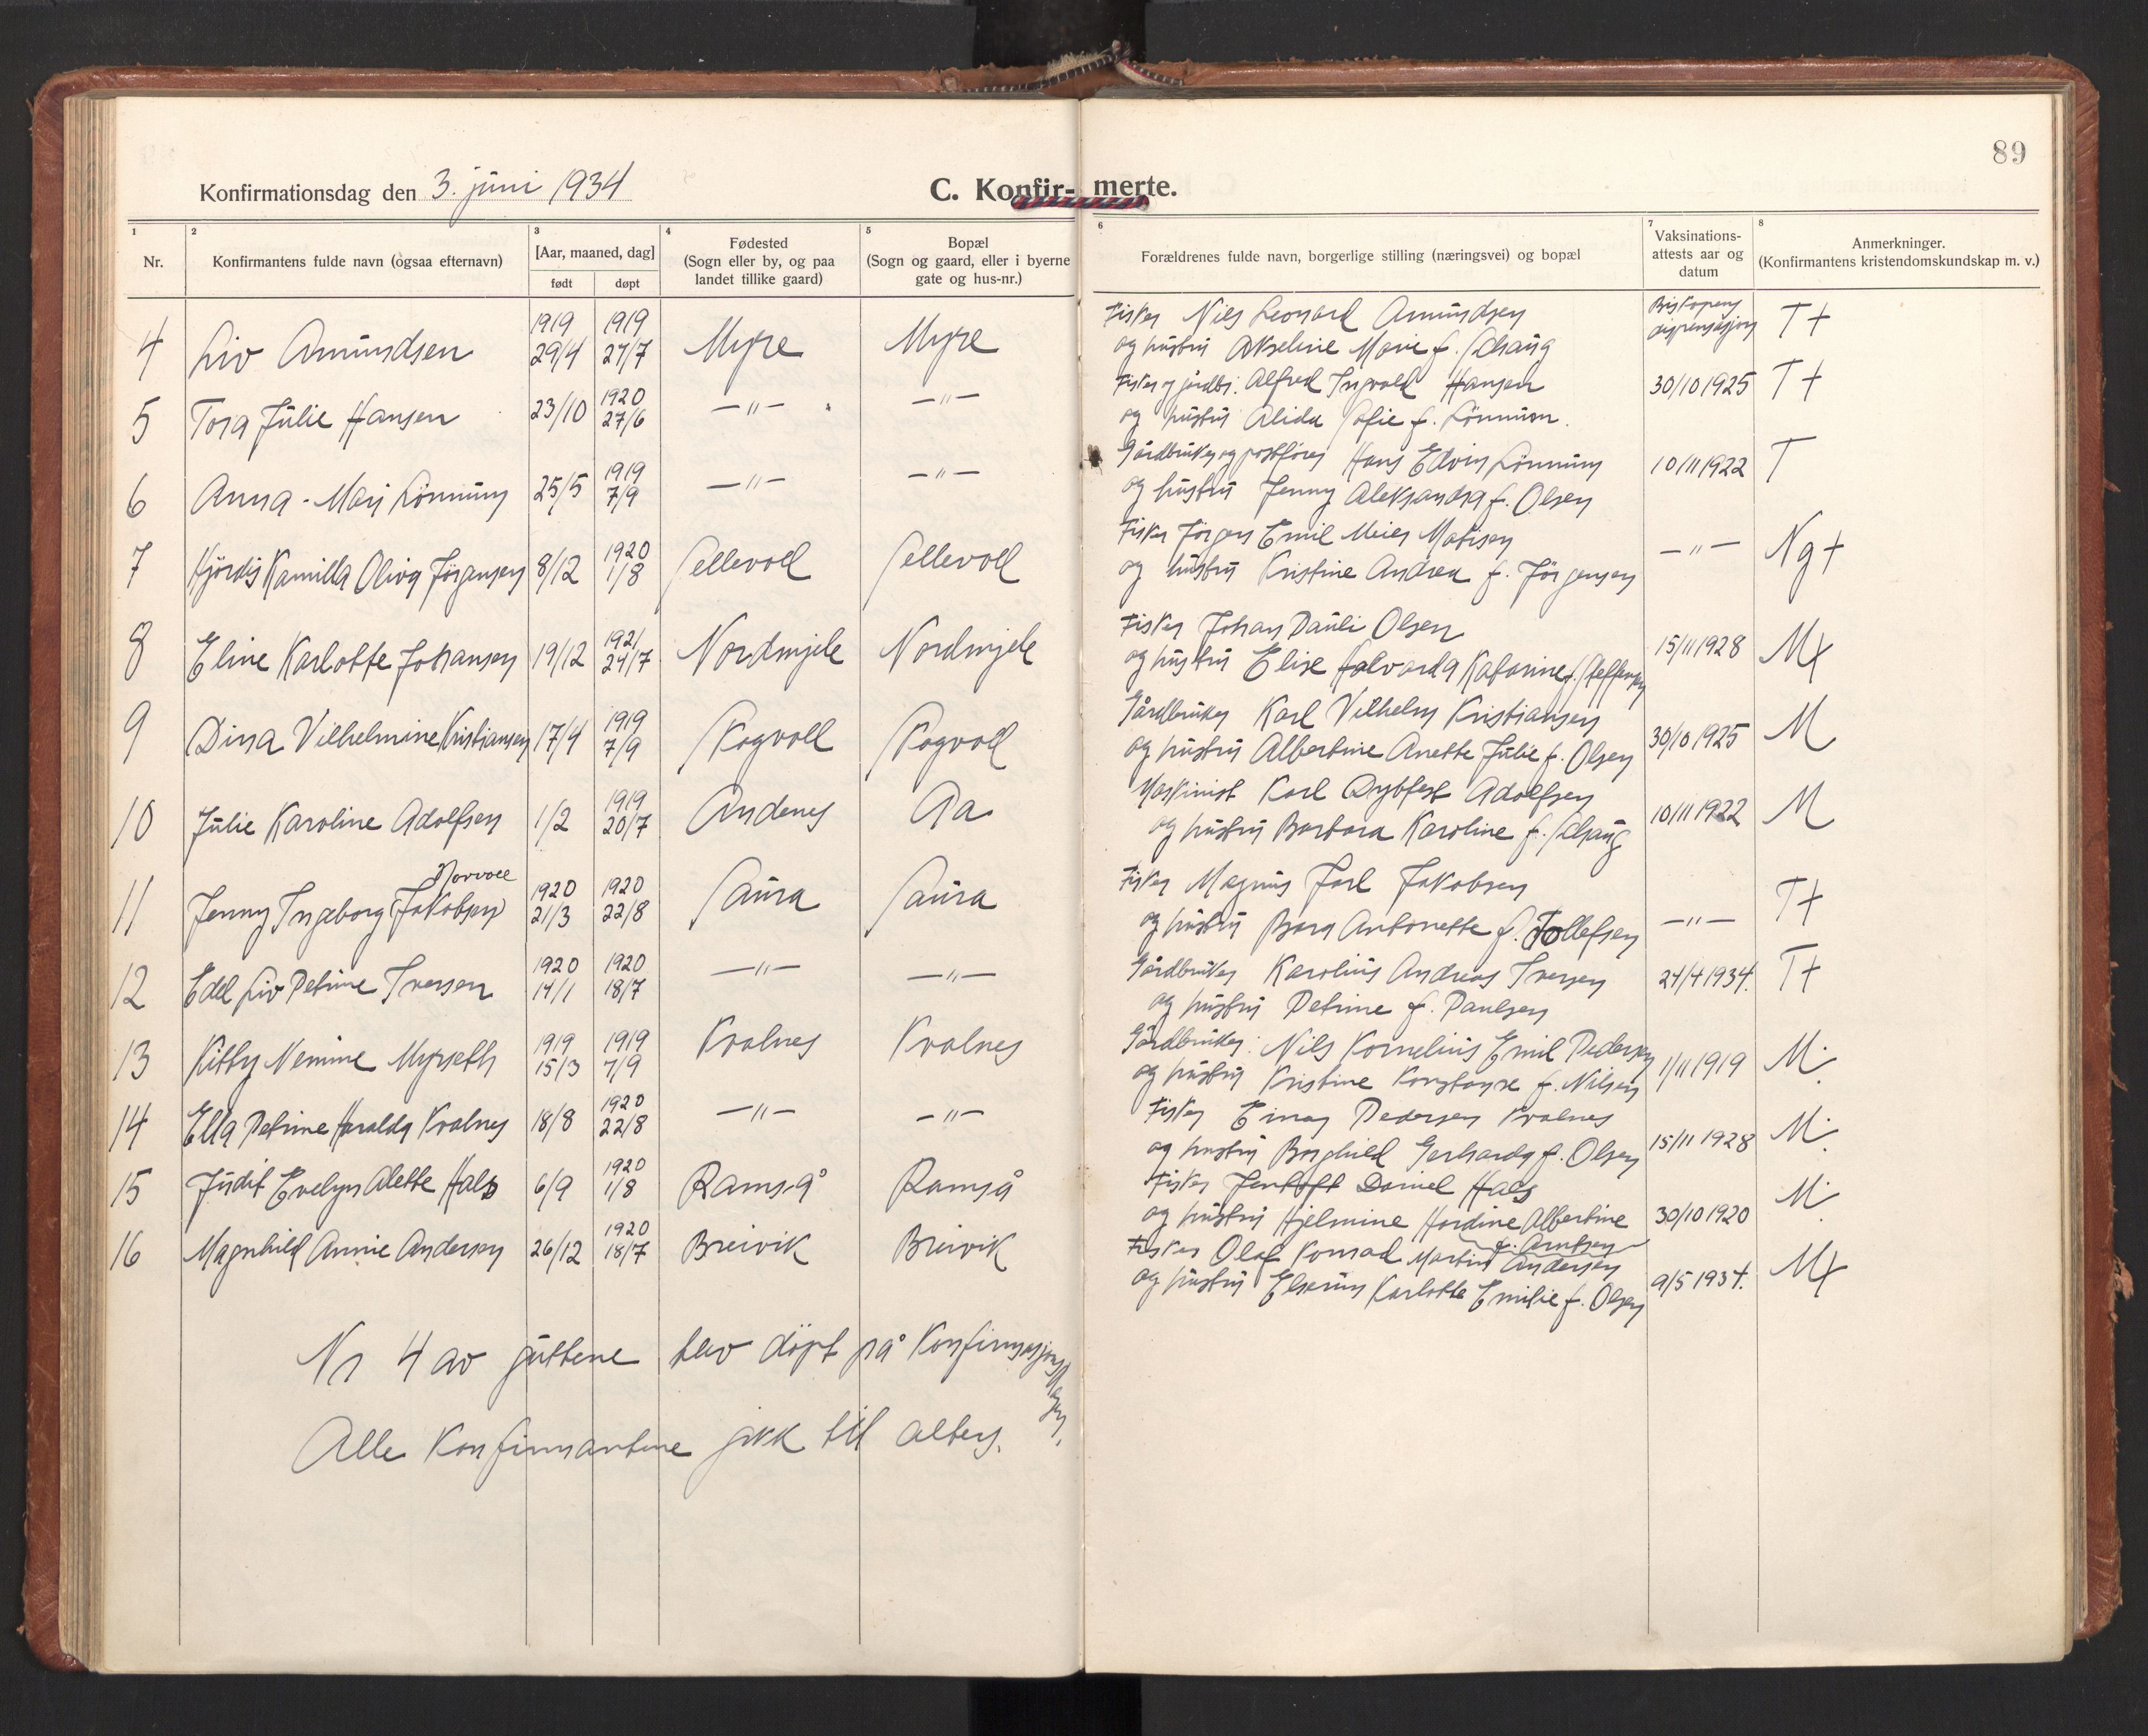 89
Konfirmationsdag den 3. juni 1934
C. Konfir- merte.
1 2 3 4 5 6 7 8
Nr.
Konfirmantens fulde navn (ogsaa efternavn)
[Aar, maaned, dag]
født døpt
Fødested
(Sogn eller by, og paa
landet tillike gaard)
Bopæl
(Sogn og gaard, eller i byerne
gate og hus-nr.)
Forældrenes fulde navn, borgerlige stilling (næringsvei) og bopæl
Vaksinations-
attests aar og
datum
Anmerkninger.
(Konfirmantens kristendomskundskap m. v.)
4 Liv Amundsen 1919 29/4 1919 27/7 Myre Myre
Fisker Nils Leonard Amundsen
og hustru Akseline Marie f. Schaug
Biskopens dispensasjon T+
5 Tora Julie Hansen 23/10 1920 27/6 —"— —"—
Fisker og gårdbr. Alfred Ingvald Hansen
og hustru Alida Sofie f. Lönnum.
30/10 1925 T+
6 Anna-Mari Lönnum 25/5 1919 7/9 —"— —"—
Gårdbruker og postfører Hans Edvin Lönnum
og hustru Jenny Aleksandra f. Olsen
10/11 1922 T
7 Hjördis Kamilla Oliva Jörgensen 8/12 1920 1/8 Sellevoll Sellevoll
Fisker Jörgen Emil Meier Matisen
og hustru Kristine Andrea f. Jörgensen
—"— Ng+
8 Eline Karlotte Johansen 19/12 1921 24/7 Nordmjele Nordmjele
Fisker Johan Pauli Olsen
og hustru Elise Halvarda Katarine f. Steffensen
15/11 1928 M+
9 Dina Vilhelmine Kristiansen 17/4 1919 7/9 Skogvoll Skogvoll
Gårdbruker Karl Vilhelm Kristiansen
og hustru Albertine Anette Julie f. Olsen
30/10 1925 M
10 Julie Karoline Adolfsen 1/2 1919 20/7 Andenes Aa
Maskinist Karl Dybfest Adolfsen
og hustru Barbara Karoline f. Schaug
10/11 1922 M
Norvoll
11 Jenny Ingeborg Jakobsen 1920 21/3 1920 22/8 Saura Saura
Fisker Magnus Jarl Jakobsen
og hustru Borg Antonette f. Tollefsen
—"— T+
12 Edel Liv Petrine Iversen 1920 14/1 1920 18/7 —"— —"—
Gårdbruker Karolius Andreas Iversen
og hustru Petrine f. Paulsen
24/4 1934. T+
13 Kitty Nemine Myrseth 1919 15/3 1919 7/9 Kvalnes Kvalnes
Gårdbruker: Nils Kornelius Emil Pedersen
og hustru Kristine Konstanse f. Nilsen
1/11 1919 M.
14 Ella Petrine Haralda Kvalnes 18/8 1920 22/8 —"— —"—
Fisker Einar Pedersen Kvalnes
og hustru Borghild Gerharda f. Olsen
15/11 1928 M.
15 Judit Evelyn Alette Hals 6/9 1920 1/8 Ramså Ramså
Fisker Jentoft Daniel Hals
og hustru Hjelmine Hardine Albertine
f. Arntsen
30/10 1920 M.
16 Magnhild Annie Andersen 26/12 1920 18/7 Breivik Breivik
Fisker Olaf Konrad Martin Andersen
og hustru Karlotte Emilie f. Olsen
9/5 1934. M+
Nr 4 av guttene blev döpt på Konfirmasjonsdagen.
Alle Konfirmantene gikk til alters.